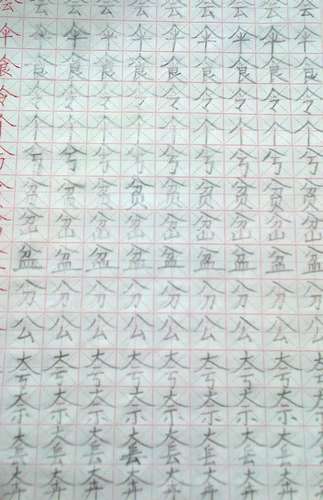 会 会 会 会 会 会 会 会 会
伞 伞 伞 伞 伞 伞 伞 伞 伞
食 食 食 食 食 食 食 食 食
令 令 令 令 令 令 令 令 令
个 个 个 个 个 个 个 个 个
兮 兮 兮 兮 兮 兮 兮 兮 兮
贫 贫 贫 贫 贫 贫 贫 贫 贫
岔 岔 岔 岔 岔 岔 岔 岔 岔
盆 盆 盆 盆 盆 盆 盆 盆 盆
分 分 分 分 分 分 分 分 分
公 公 公 公 公 公 公 公 公
夸 夸 夸 夸 夸 夸 夸 夸 夸
奈 奈 奈 奈 奈 奈 奈 奈 奈
套 套 套 套 套 套 套 套 套
奔 奔 奔 奔 奔 奔 奔 奔 奔